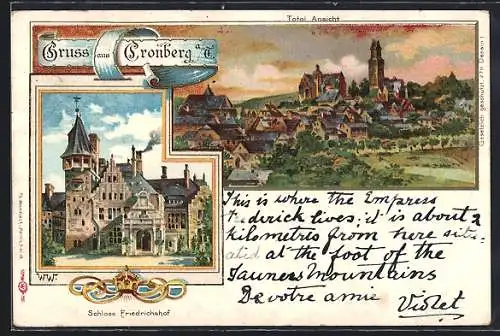 Total Ansicht
Gruss aus Cronberg a/T.
Gesetzlich geschützt.
W.W.
Schloss Friedrichshof
This is where the Empress
Frederick lives: it is about 2
kilometres from here situ-
ated at the foot of the
Taunus Mountains
De votre amie Violet